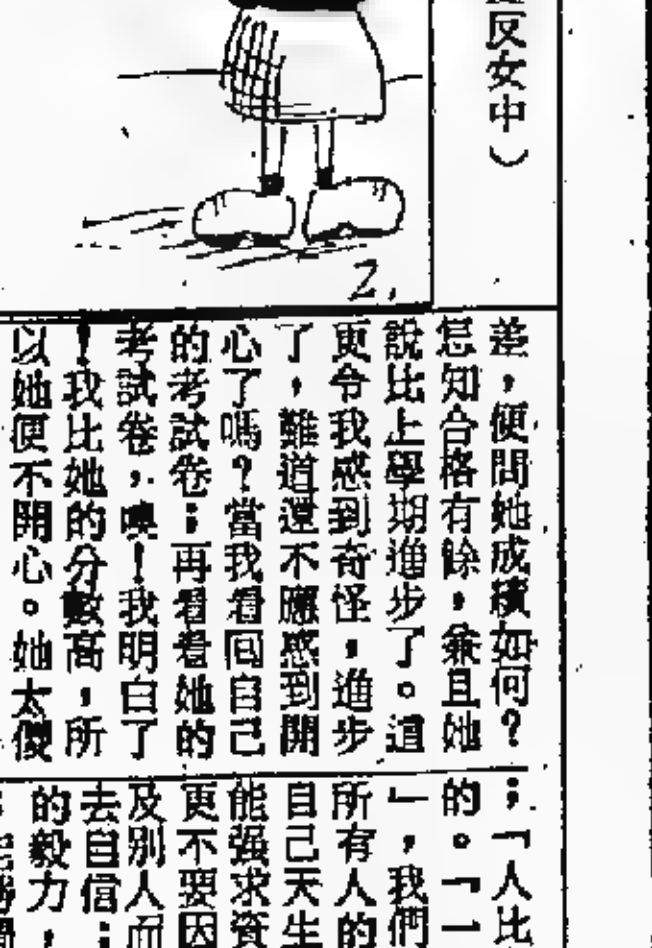 反女中）
2.
差，便問她成績如何？
怎知合格有餘，兼且她
說比上學期進步了。這
更令我感到奇怪，進步
了，難道還不應感到開
心了嗎？當我看回自己
的考試卷；再看看她的
考試卷，噢！我明白了
！我比她的分數高，所
以她便不開心。她太傻
；「人比
的。「一
」，我們
所有人的
自己天生
能强求資
更不要因
及別人而
去自信；
的毅力，